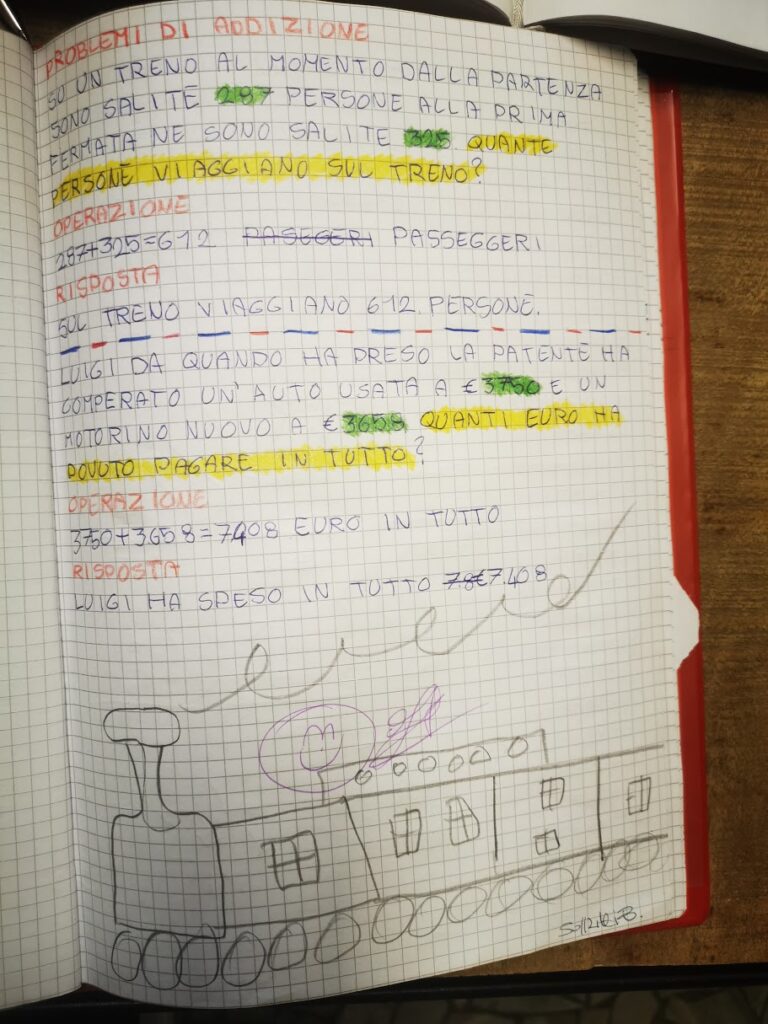 PROBLEMI DI ADDIZIONE
SU UN TRENO AL MOMENTO DALLA PARTENZA
SONO SALITE 287 PERSONE ALLA PRIMA
FERMATA NE SONO SALITE 325 QUANTE
PERSONE VIAGGIANO SUL TRENO?
OPERAZIONE
287+325=612 PASEGGERI PASSEGGERI
RISPOSTA
SUL TRENO VIAGGIANO 612 PERSONE.
LUIGI DA QUANDO HA PRESO LA PATENTE HA
COMPERATO UN'AUTO USATA A € 3750 E UN
MOTORINO NUOVO A € 3658 QUANTI EURO HA
DOVUTO PAGARE IN TUTTO?
OPERAZIONE
3750+3658=7408 EURO IN TUTTO
RISPOSTA
LUIGI HA SPESO IN TUTTO €7.408